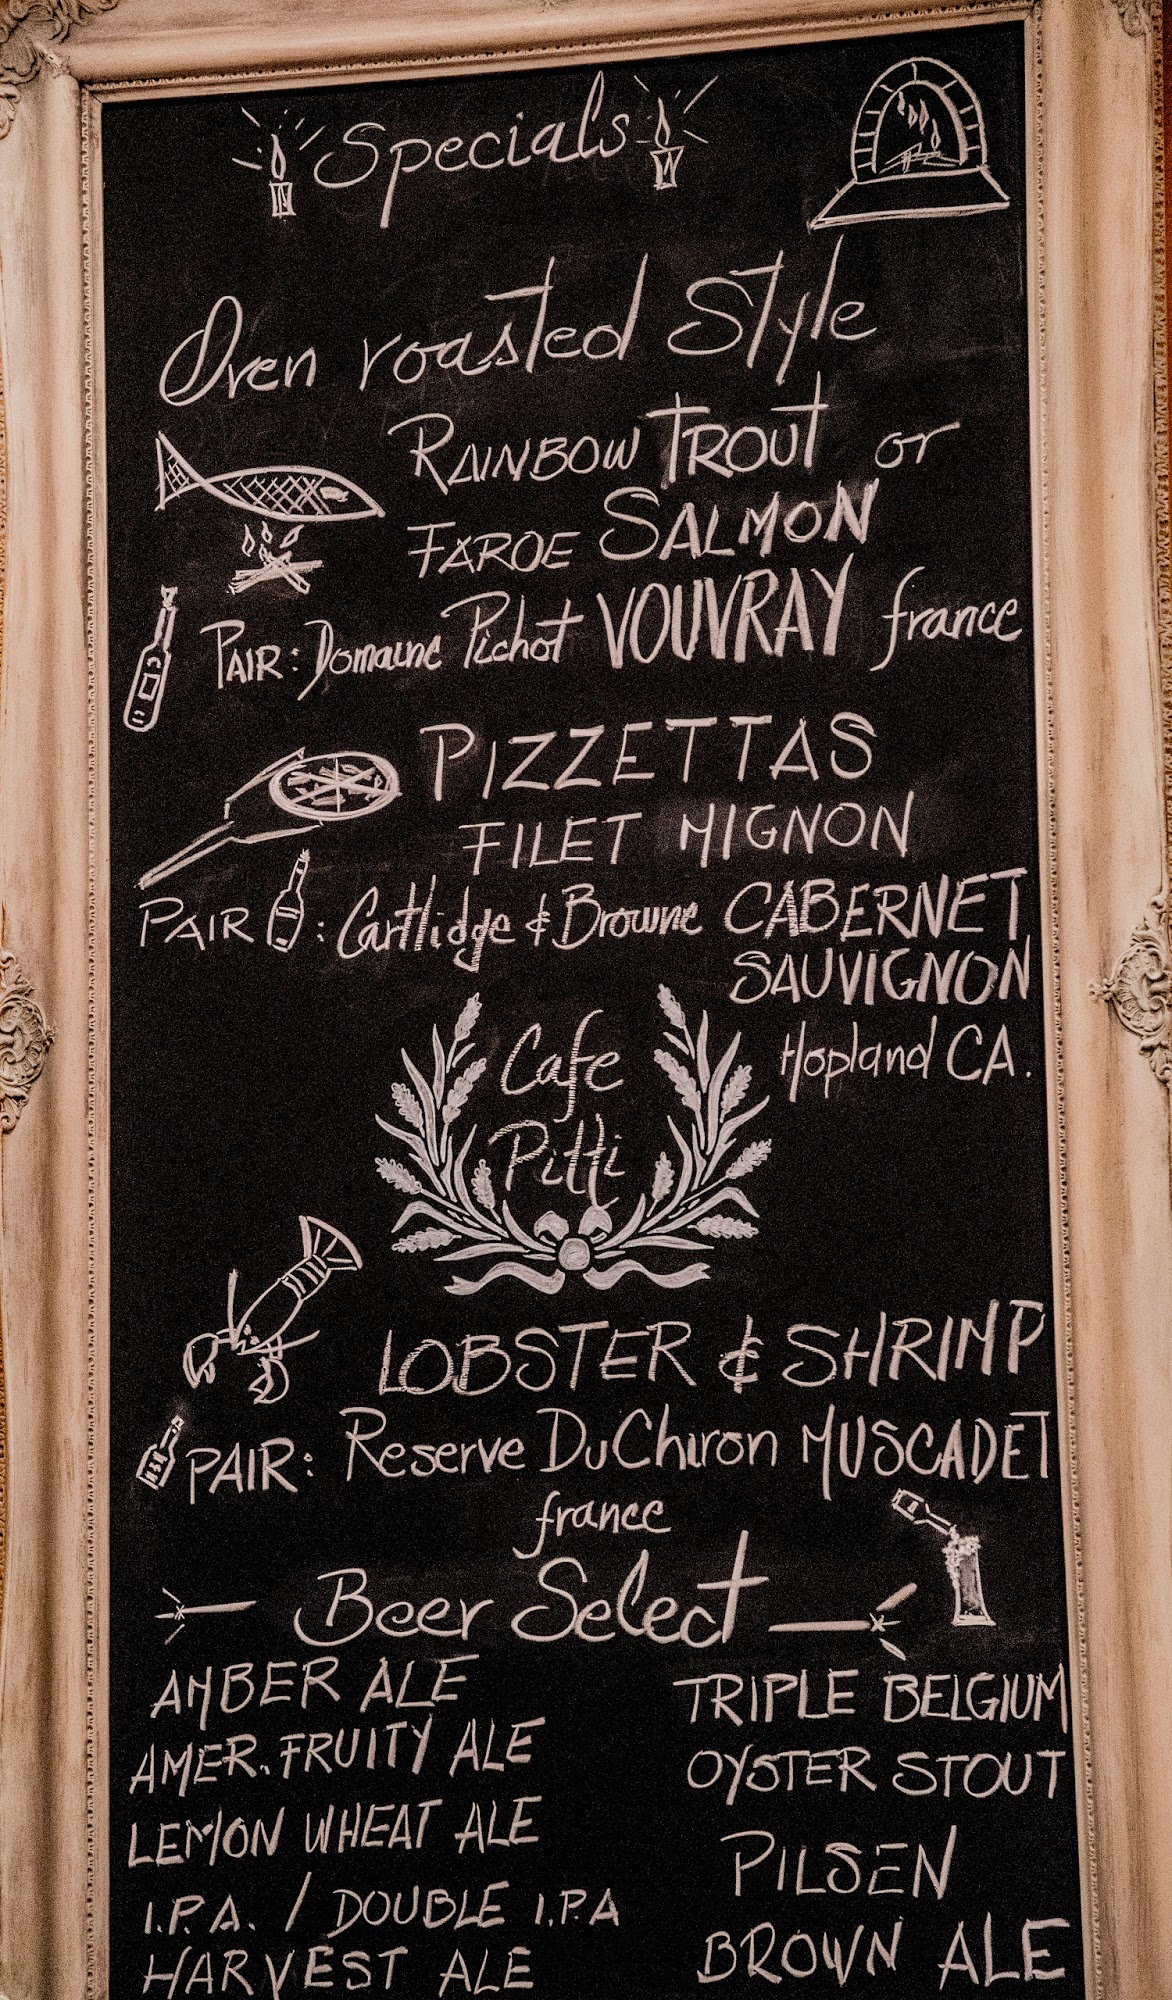 Specials
Oven roasted Style
RAINBOW TROUT or
FAROE SALMON
PAIR: Domaine Pichot VOUVRAY france
PIZZETTAS
FILET MIGNON
PAIR : Cartlidge & Browne CABERNET
SAUVIGNON
Hopland CA.
Cafe
Pitti
LOBSTER & SHRIMP
PAIR: Reserve DuChiron MUSCADET
france
Beer Select
AMBER ALE
AMER. FRUITY ALE
LEMON WHEAT ALE
I.P.A. / DOUBLE I.P.A
HARVEST ALE
TRIPLE BELGIUM
OYSTER STOUT
PILSEN
BROWN ALE